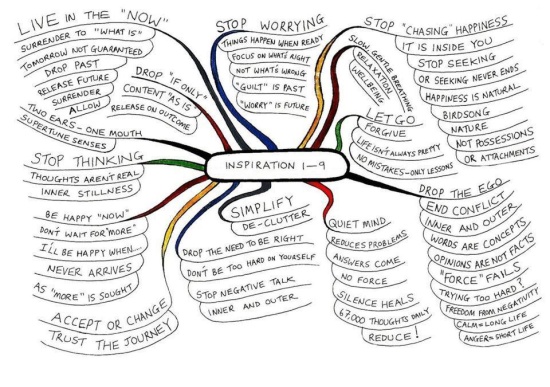 LIVE IN THE "NOW"
SURRENDER TO "WHAT IS"
TOMORROW NOT GUARANTEED
DROP PAST
RELEASE FUTURE
SURRENDER
ALLOW
DROP "IF ONLY"
CONTENT "AS IS"
RELEASE ON OUTCOME
TWO EARS - ONE MOUTH
SUPERTUNE SENSES
STOP THINKING
THOUGHTS AREN'T REAL
INNER STILLNESS
BE HAPPY "NOW"
DON'T WAIT FOR "MORE"
I'LL BE HAPPY WHEN...
NEVER ARRIVES
AS "MORE" IS SOUGHT
ACCEPT OR CHANGE
TRUST THE JOURNEY
STOP WORRYING
THINGS HAPPEN WHEN READY
FOCUS ON WHAT'S RIGHT
NOT WHAT'S WRONG
"GUILT" IS PAST
"WORRY" IS FUTURE
INSPIRATION 1-9
SIMPLIFY
DE-CLUTTER
DROP THE NEED TO BE RIGHT
DON'T BE TOO HARD ON YOURSELF
STOP NEGATIVE TALK
INNER AND OUTER
STOP "CHASING" HAPPINESS
IT IS INSIDE YOU
STOP SEEKING
OR SEEKING NEVER ENDS
HAPPINESS IS NATURAL
BIRDSONG
NATURE
NOT POSSESSIONS
OR ATTACHMENTS
SLOW, GENTLE BREATHING
RELAXATION
WELLBEING
LET GO
FORGIVE
LIFE ISN'T ALWAYS PRETTY
NO MISTAKES - ONLY LESSONS
DROP THE EGO
END CONFLICT
INNER AND OUTER
WORDS ARE CONCEPTS
OPINIONS ARE NOT FACTS
"FORCE" FAILS
TRYING TOO HARD?
FREEDOM FROM NEGATIVITY
CALM = LONG LIFE
ANGER = SHORT LIFE
QUIET MIND
REDUCES PROBLEMS
ANSWERS COME
NO FORCE
SILENCE HEALS
67,000 THOUGHTS DAILY
REDUCE!